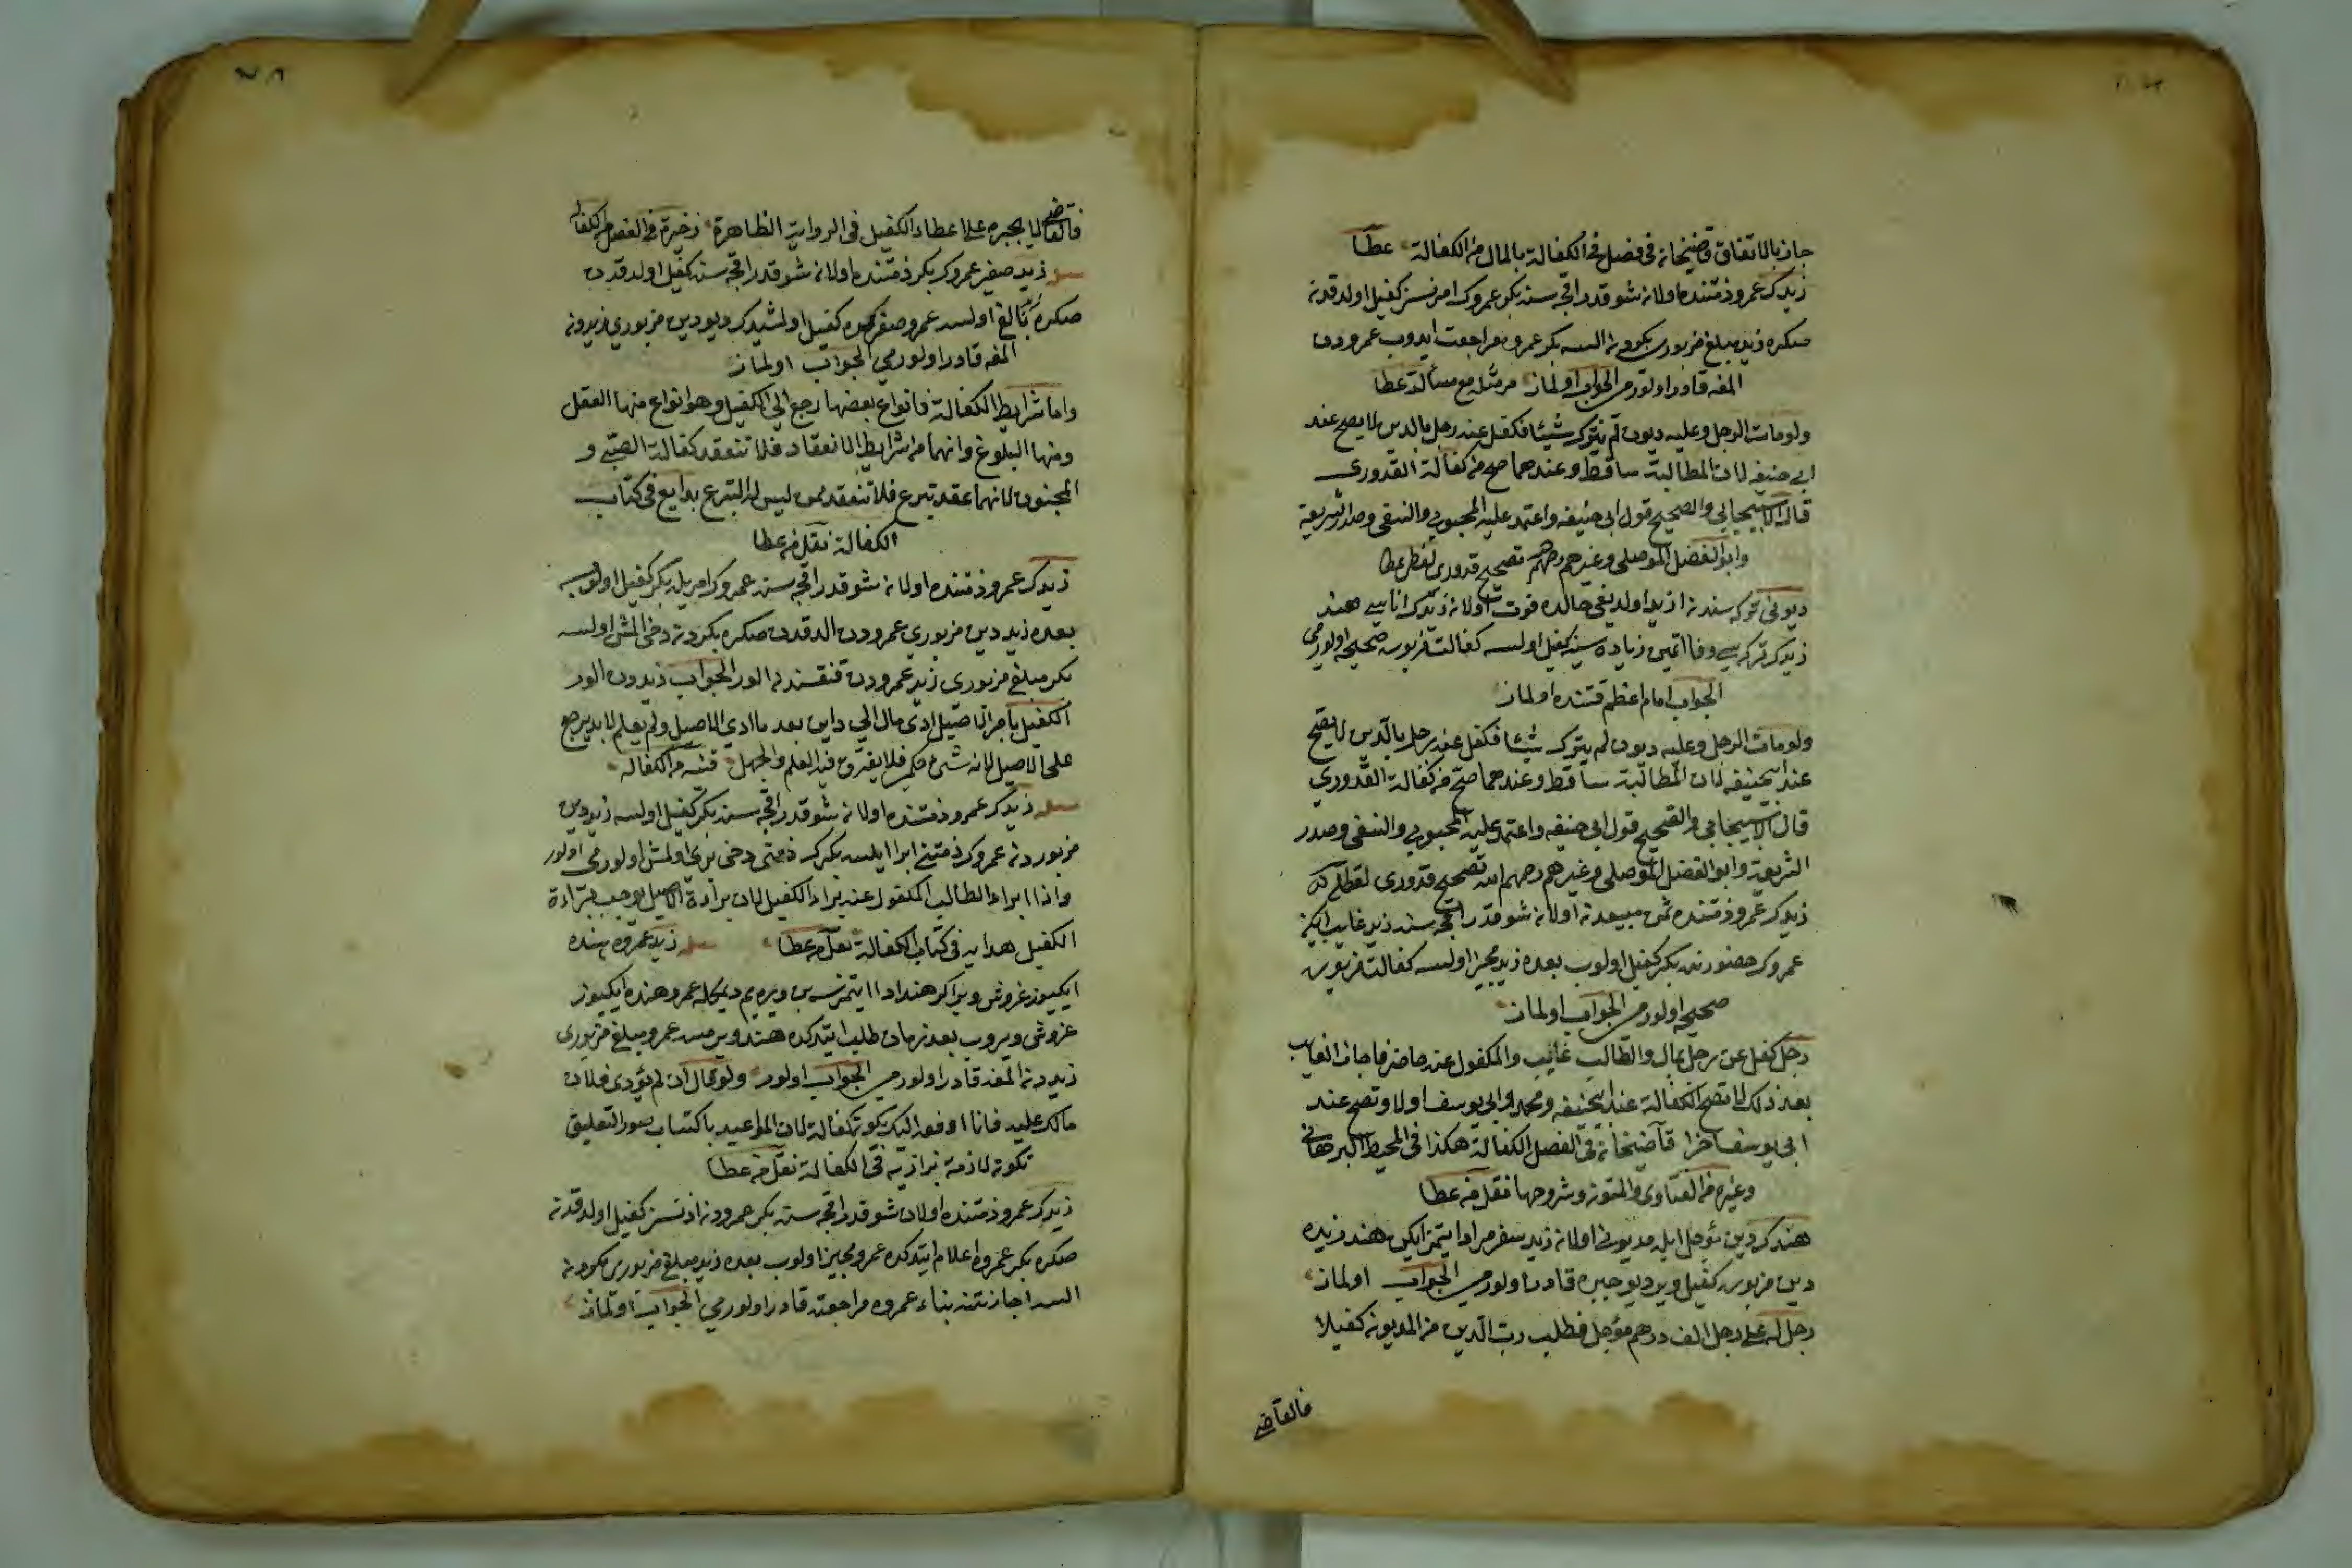 جاز بالاتفاق قاضيخان في فصل في الكفالة بالمال من الكفالة عطا
زيدك عمرو ذمتنده اولان شو قدر اقچه سنه بكر عمروك امرنسز كفيل اولدقدن
صكره زيد مبلغ مزبوري بكردن السه بكر عمروه مراجعت ايدوب عمرودن
المغه قادر اولورمي الجواب اولماز مر مثله مع مسألة عطا
ولو مات الرجل وعليه ديون لم يترك شيئا فكفل عنه رجل بالدين لا يصح عند
ابي حنيفه لان المطالبة ساقط وعندهما صح من كفالة القدوري
قال الاسبيجابي والصحيح قول ابي حنيفه واعتمد عليه المحبوبي والنسفي وصدر الشريعة
وابو الفضل الموصلي وغيرهم رحمهم تصحيح قدوري عطا
ديوني تركه سندن ازيد اولديغي حالده فوت اولان زيدك اناسي هند
زيدك تركه سي وفا اتمين زياده سنه كفيل اولسه كفالت مزبوره صحيحه اولورمي
الجواب امام اعظم قتنده اولماز
ولو مات الرجل وعليه ديون لم يترك شيئا فكفل عنه رجل بالدين لا يصح
عند ابي حنيفه لان المطالبة ساقط وعندهما صح من كفالة القدوري
قال الاسبيجابي والصحيح قول ابي حنيفه واعتمد عليه المحبوبي والنسفي وصدر
الشريعة وابو الفضل الموصلي وغيرهم رحمهم الله تصحيح قدوري
زيدك عمرو ذمتنده ثمن مبيعدن اولان شو قدر اقچه سنه زيد غايب ايكن
عمروك حضورنده بكر كفيل اولوب بعده زيد مجيز اولسه كفالت مزبوره
صحيحه اولورمي الجواب اولماز
رجل كفل عن رجل بمال والطالب غايب والمكفول عنه حاضر فاجاز الغايب
بعد ذلك لا تصح الكفالة عند ابي حنيفه ومحمد وابي يوسف اولا وتصح عند
ابي يوسف اخرا قاضيخان في الفصل الكفالة هكذا في المحيط البرهاني
وغيره من الفتاوى والمتون وشروحها نقل من عطا
هندك دين مؤجل ايله مديوني اولان زيد سفر مراد ايتمز ايكن هند زيده
دين مزبوره كفيل ويرديو جبره قادره اولورمي الجواب اولماز
رجل له على رجل الف درهم مؤجل فطلب رب الدين من المديون كفيلا
فالقاضي
فالقاضي لا يجبره على اعطاء الكفيل في الرواية الظاهرة ذخيرة في الفصل من الكفاله
زيد صغير عمروك بكر ذمتنده اولان شو قدر اقچه سنه كفيل اولدقدن
صكره بالغ اولسه عمرو صغركده كفيل اولشيدك ديو دين مزبوري زيددن
المغه قادر اولورمي الجواب اولماز
واما شرايط الكفالة فانواع بعضها رجع الى الكفيل وهو انواع منها العقل
ومنها البلوغ وانهما من شرايط الانعقاد فلا تنعقد كفالة الصبي و
المجنون لانها عقد تبرع فلا تنعقد ممن ليس له التبرع بدايع في كتاب
الكفالة نقل من عطا
زيدك عمرو ذمتنده اولان شو قدر اقچه سنه عمروك امريله بكر كفيل اولوب
بعده زيد دين مزبوري عمرودن الدقدن صكره بكردن دخي المش اولسه
بكر مبلغ مزبوري زيد عمرودن قنقسندن الور الجواب زيددن الور
الكفيل بامر الاصيل ادى مال الى داين بعد ما ادى الاصيل ولم يعلم لا بد يرجع
على الاصيل لانه شئ حكم فلا يفرق فيه العلم والجهل قنيه من الكفاله
زيدك عمرو ذمتنده اولان شو قدر اقچه سنه بكر كفيل اولسه زيد دين
مزبوردن عمروك ذمتني ابرا ايلسه بكرك ذمتى دخى برى اولمش اولورمى اولور
واذا ابراء الطالب المكفول عنه براء الكفيل لان براءة الاصيل يوجب براءة
الكفيل هدايه في كتاب الكفالة نقل من عطا زيد عمروه هنده
ايكيوز غروش وير اكر هند ادا ايتمزسه بن ويريم ديمكله عمرو هنده ايكيوز
غروشى ويروب بعد زمان طلب ايتدكده هند ويرمسه عمرو مبلغ مزبورى
زيددن المغه قادر اولورمي الجواب اولور ولو قال ان لم يؤدى فلان
مالك عليه فانا ادفعه اليك يكون كفالة لان المواعيد باكتساب صور التعليق
تكون لازمة بزازيه في الكفالة نقل من عطا
زيدك عمرو ذمتنده اولان شو قدر اقچه سنه بكر عمرودن اذنسز كفيل اولدقدن
صكره بكر عمروه اعلام ايتدكده عمرو مجيز اولوب بعده زيد مبلغ مزبورى بكردن
السه اجازتنه بناء عمروه مراجعته قادر اولورمي الجواب اولماز